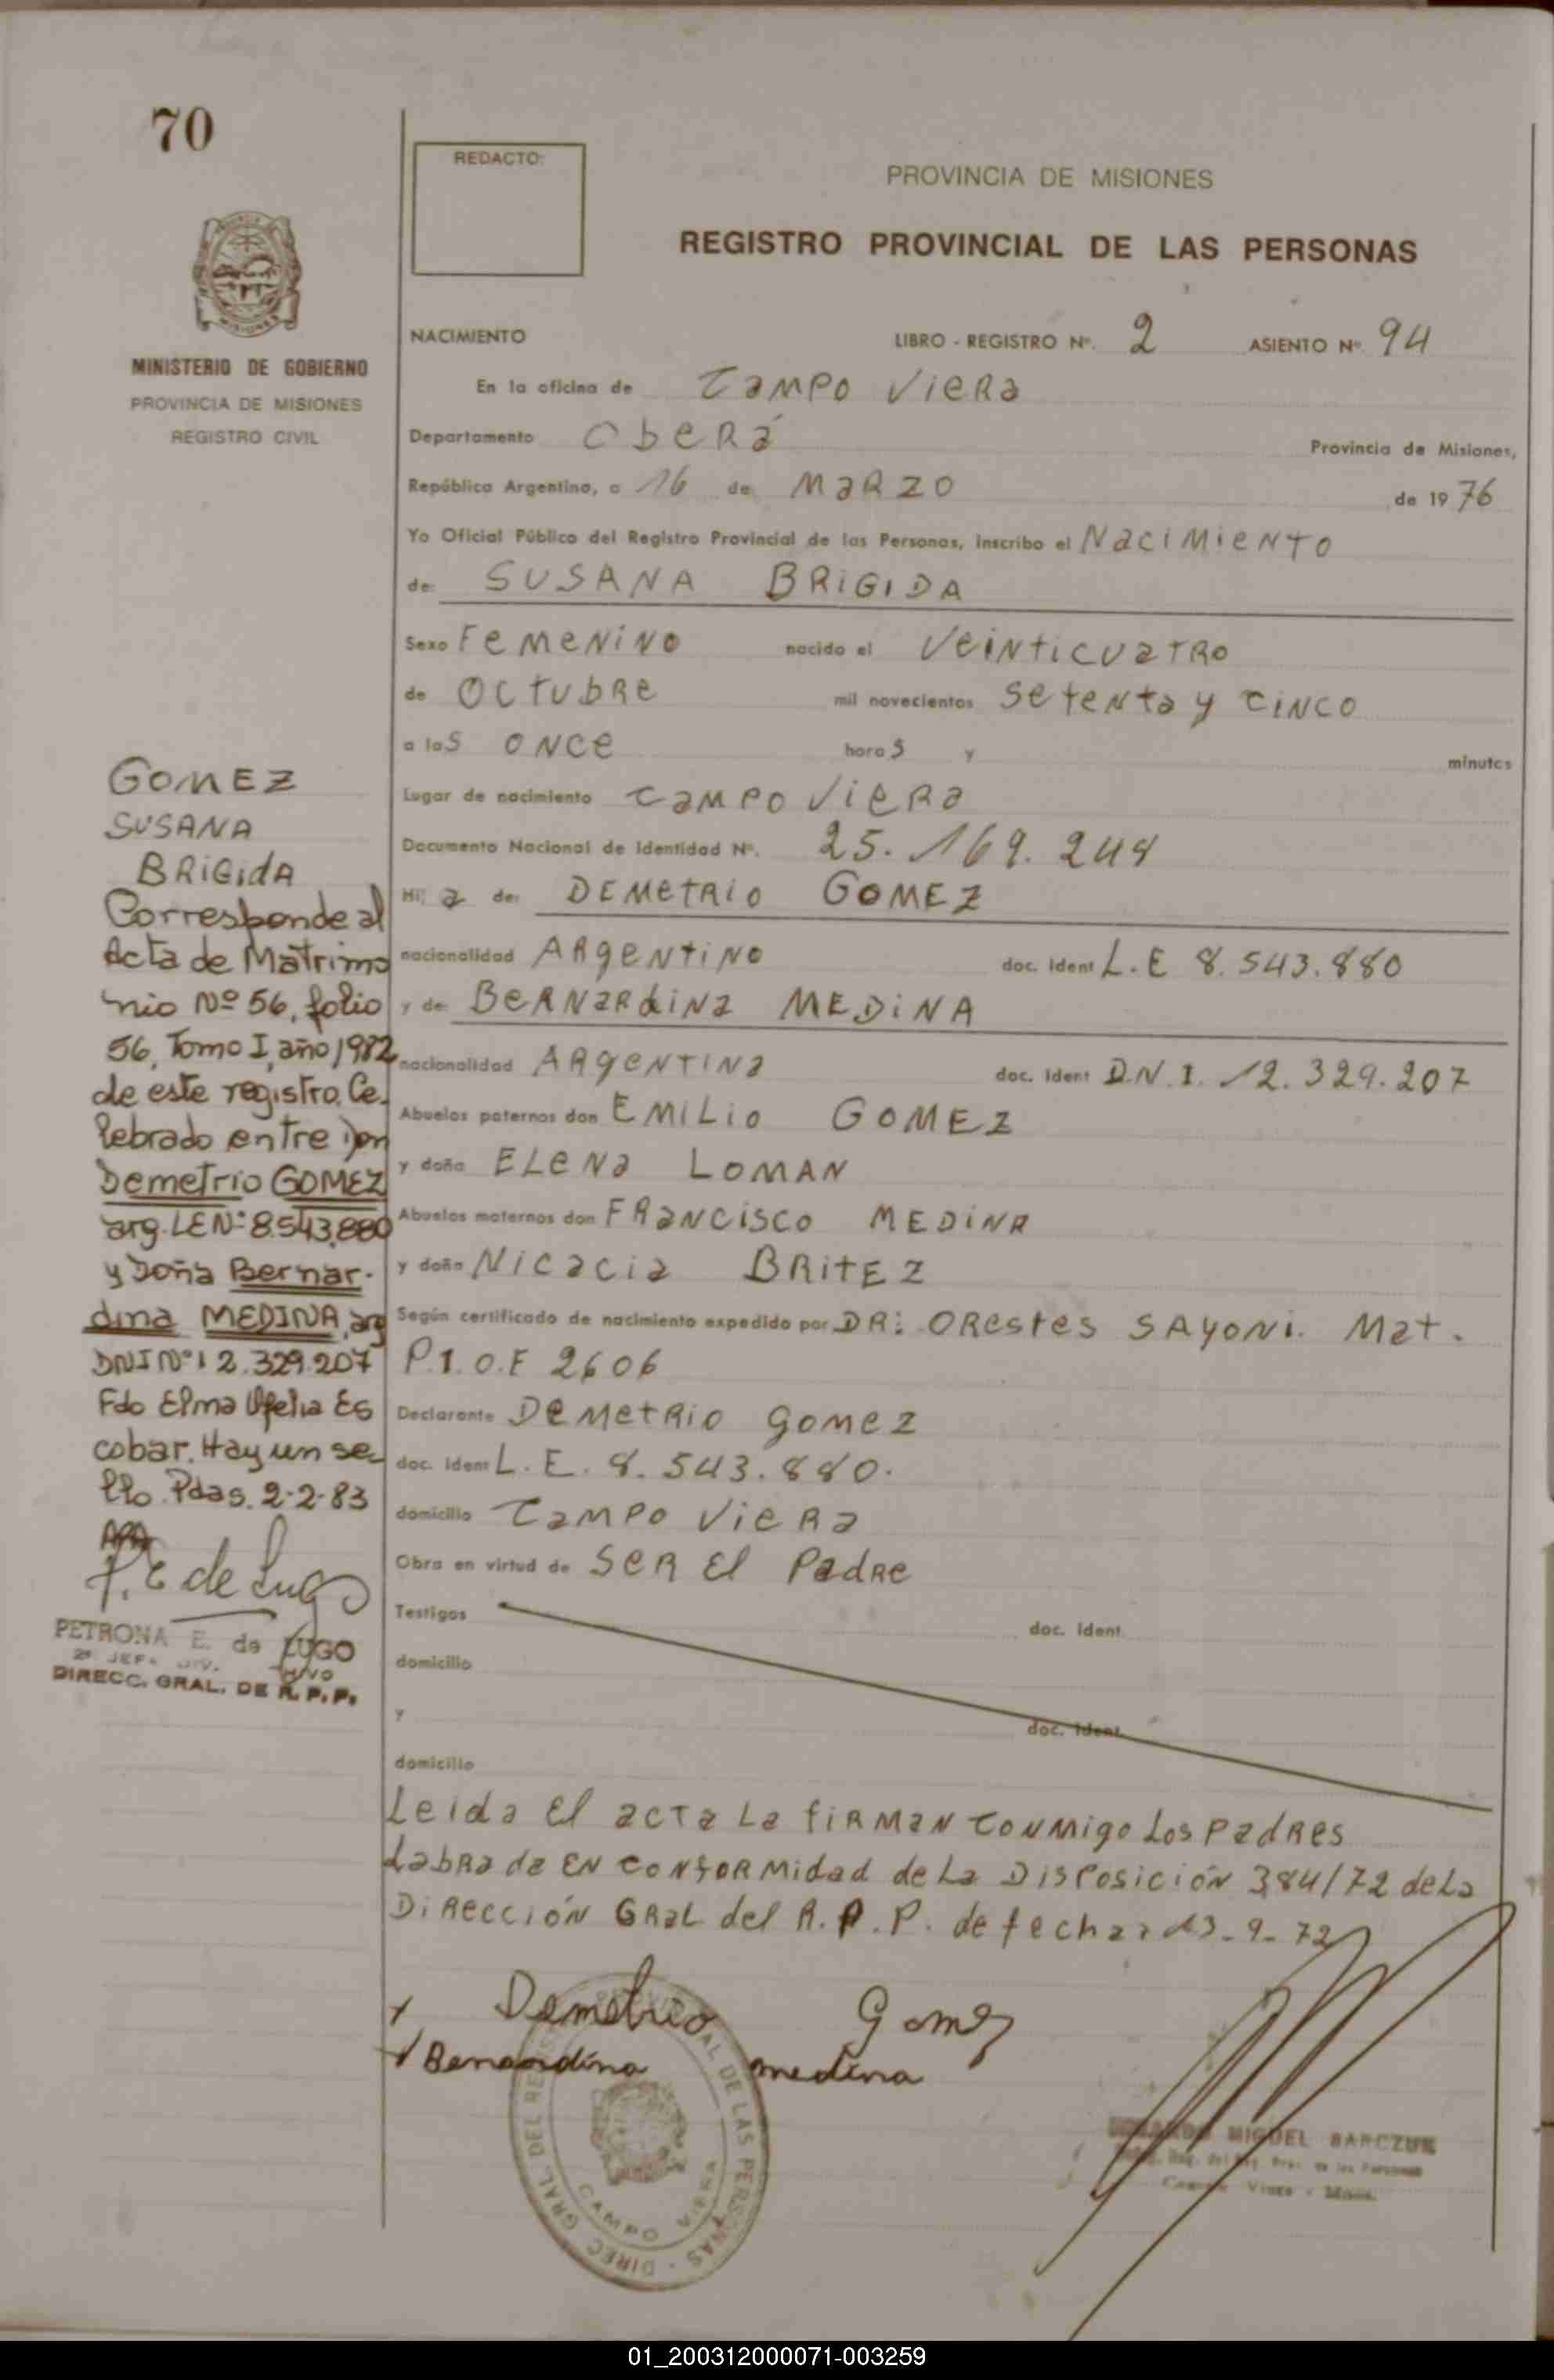 70
REDACTO:
PROVINCIA DE MISIONES
REGISTRO PROVINCIAL DE LAS PERSONAS
MISIONES
MINISTERIO DE GOBIERNO
PROVINCIA DE MISIONES
REGISTRO CIVIL
NACIMIENTO LIBRO - REGISTRO Nº. 2 ASIENTO Nº. 94
En la oficina de CAMPO VIERA
Departamento OBERÁ Provincia de Misiones,
República Argentina, a 16 de MARZO de 1976
Yo Oficial Público del Registro Provincial de las Personas, inscribo el NACIMIENTO
de: SUSANA BRIGIDA
Sexo FEMENINO nacido el VEINTICUATRO
de OCTUBRE mil novecientos SETENTA Y CINCO
a las ONCE horas y minutos
Lugar de nacimiento CAMPO VIERA
Documento Nacional de Identidad Nº. 25.169.244
Hija de: DEMETRIO GOMEZ
nacionalidad ARGENTINO doc. ident L.E 8.543.880
y de BERNARDINA MEDINA
nacionalidad ARGENTINA doc. ident D.N.I. 12.329.207
Abuelos paternos don EMILIO GOMEZ
y doña ELENA LOMAN
Abuelos maternos don FRANCISCO MEDINA
y doña NICACIA BRITEZ
Según certificado de nacimiento expedido por DR: ORESTES SAYONI. Mat.
P.I.O.F 2606
Declarante DEMETRIO GOMEZ
doc. ident L.E. 8.543.880.
domicilio CAMPO VIERA
Obra en virtud de SER El Padre
Testigos doc. ident.
domicilio
y doc. ident.
domicilio
Leida El acta La firman conmigo Los Padres
Labrada en conformidad de La Disposición 384/72 de La
Dirección Gral del R.P.P. de fecha 13-9-72
Demetrio Gomez
Bernardina medina
GOMEZ
SUSANA
BRIGIDA
Corresponde al
Acta de Matrimo
nio Nº 56, folio
56, Tomo I, año 1982
de este registro. Ce-
lebrado entre don
Demetrio GOMEZ
arg. LE Nº 8.543.880
y Doña Bernar-
dina MEDINA, arg
DNI Nº 12.329.207
Fdo Elma Ofelia Es
cobar. Hay un se-
llo. Pdas. 2-2-83
P. E de Lugo
PETRONA E. de LUGO
DIRECC. GRAL. DE R. P. P.
DIREC. GRAL. DEL REGISTRO PROVINCIAL DE LAS PERSONAS
CAMPO VIERA
MIGUEL BARCZUK
01_200312000071-003259